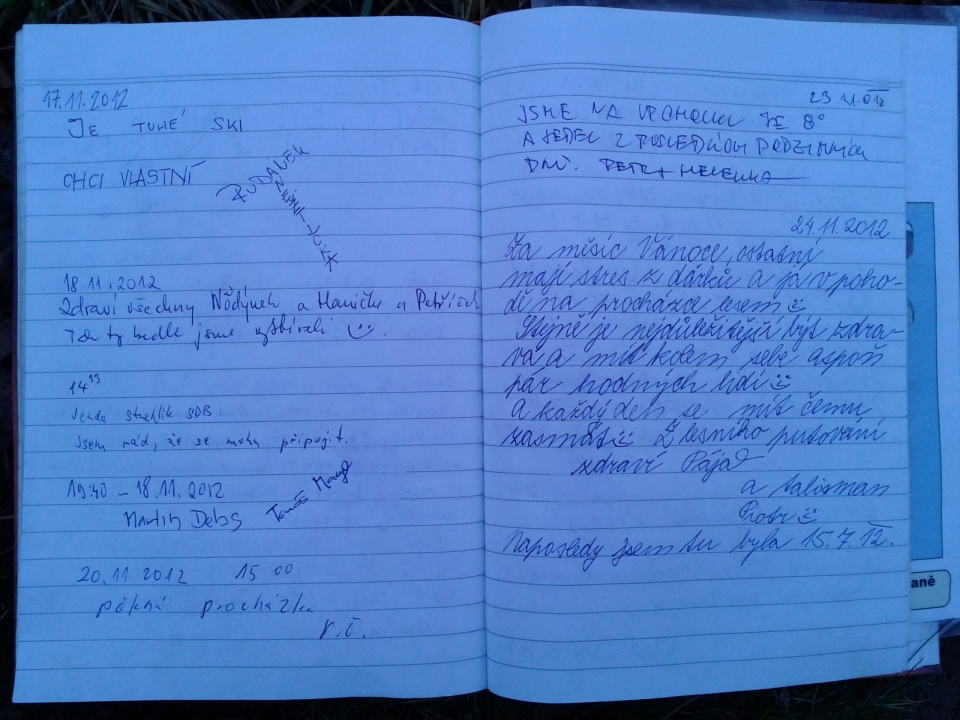 17.11.2012
JE TUHÉ SKI
CHCI VLASTNÍ
18.11.2012
Zdraví všechny Nődýnek a Hanička a Petříček
Tak ty hudle jsme vybírali
14³³
Jsem rád, že se mohu připojit.
19:40 – 18.11.2012
Martin Debs
Tomáš
20.11.2012 15 00
pěkná procházka
V.Č.
23.11.2012
JSME NA VRCHOLU JE 8°
A JEDEN Z POSLEDNÍCH PODZIMNÍCH
DNŮ. PETR + HELENKA
24.11.2012
Za měsíc Vánoce, ostatní
mají stres z dárků a já v poho-
dě na procházce lesem
Stejně je nejdůležitější být zdra-
vá a mít kolem sebe aspoň
pár hodných lidí
A každý den se mít čemu
zasmát Z lesního putování
zdraví Pája
a talisman
Piotr
Naposledy jsem tu byla 15.7.12.
aně